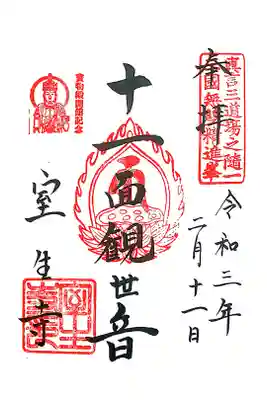 三道場之随一
精進峯
奉拝
令和三年
二月十一日
十一面観世音
寳物殿開館記念
室生寺